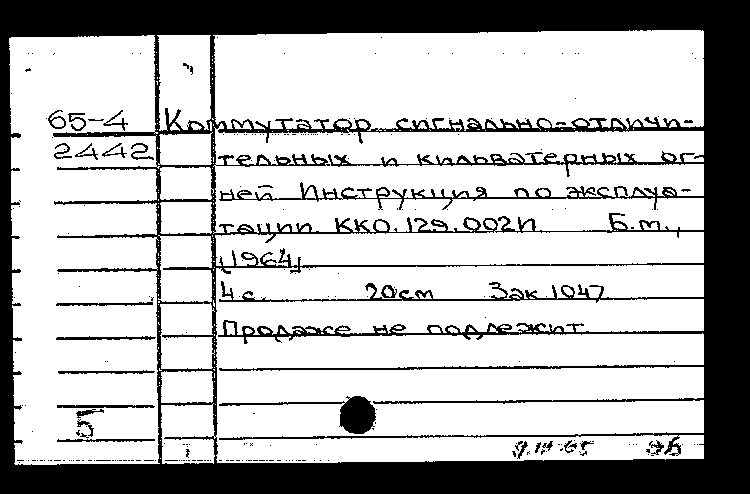 65-4 Коммутатор сигнально-отличи-
2442 тельных и кильватерных ог-
ней Инструкция по эксплуа-
тации. ККО.129.002И Б.м.,
[1964]
4с. 20см Зак 1047
Продаже не подлежит.
5